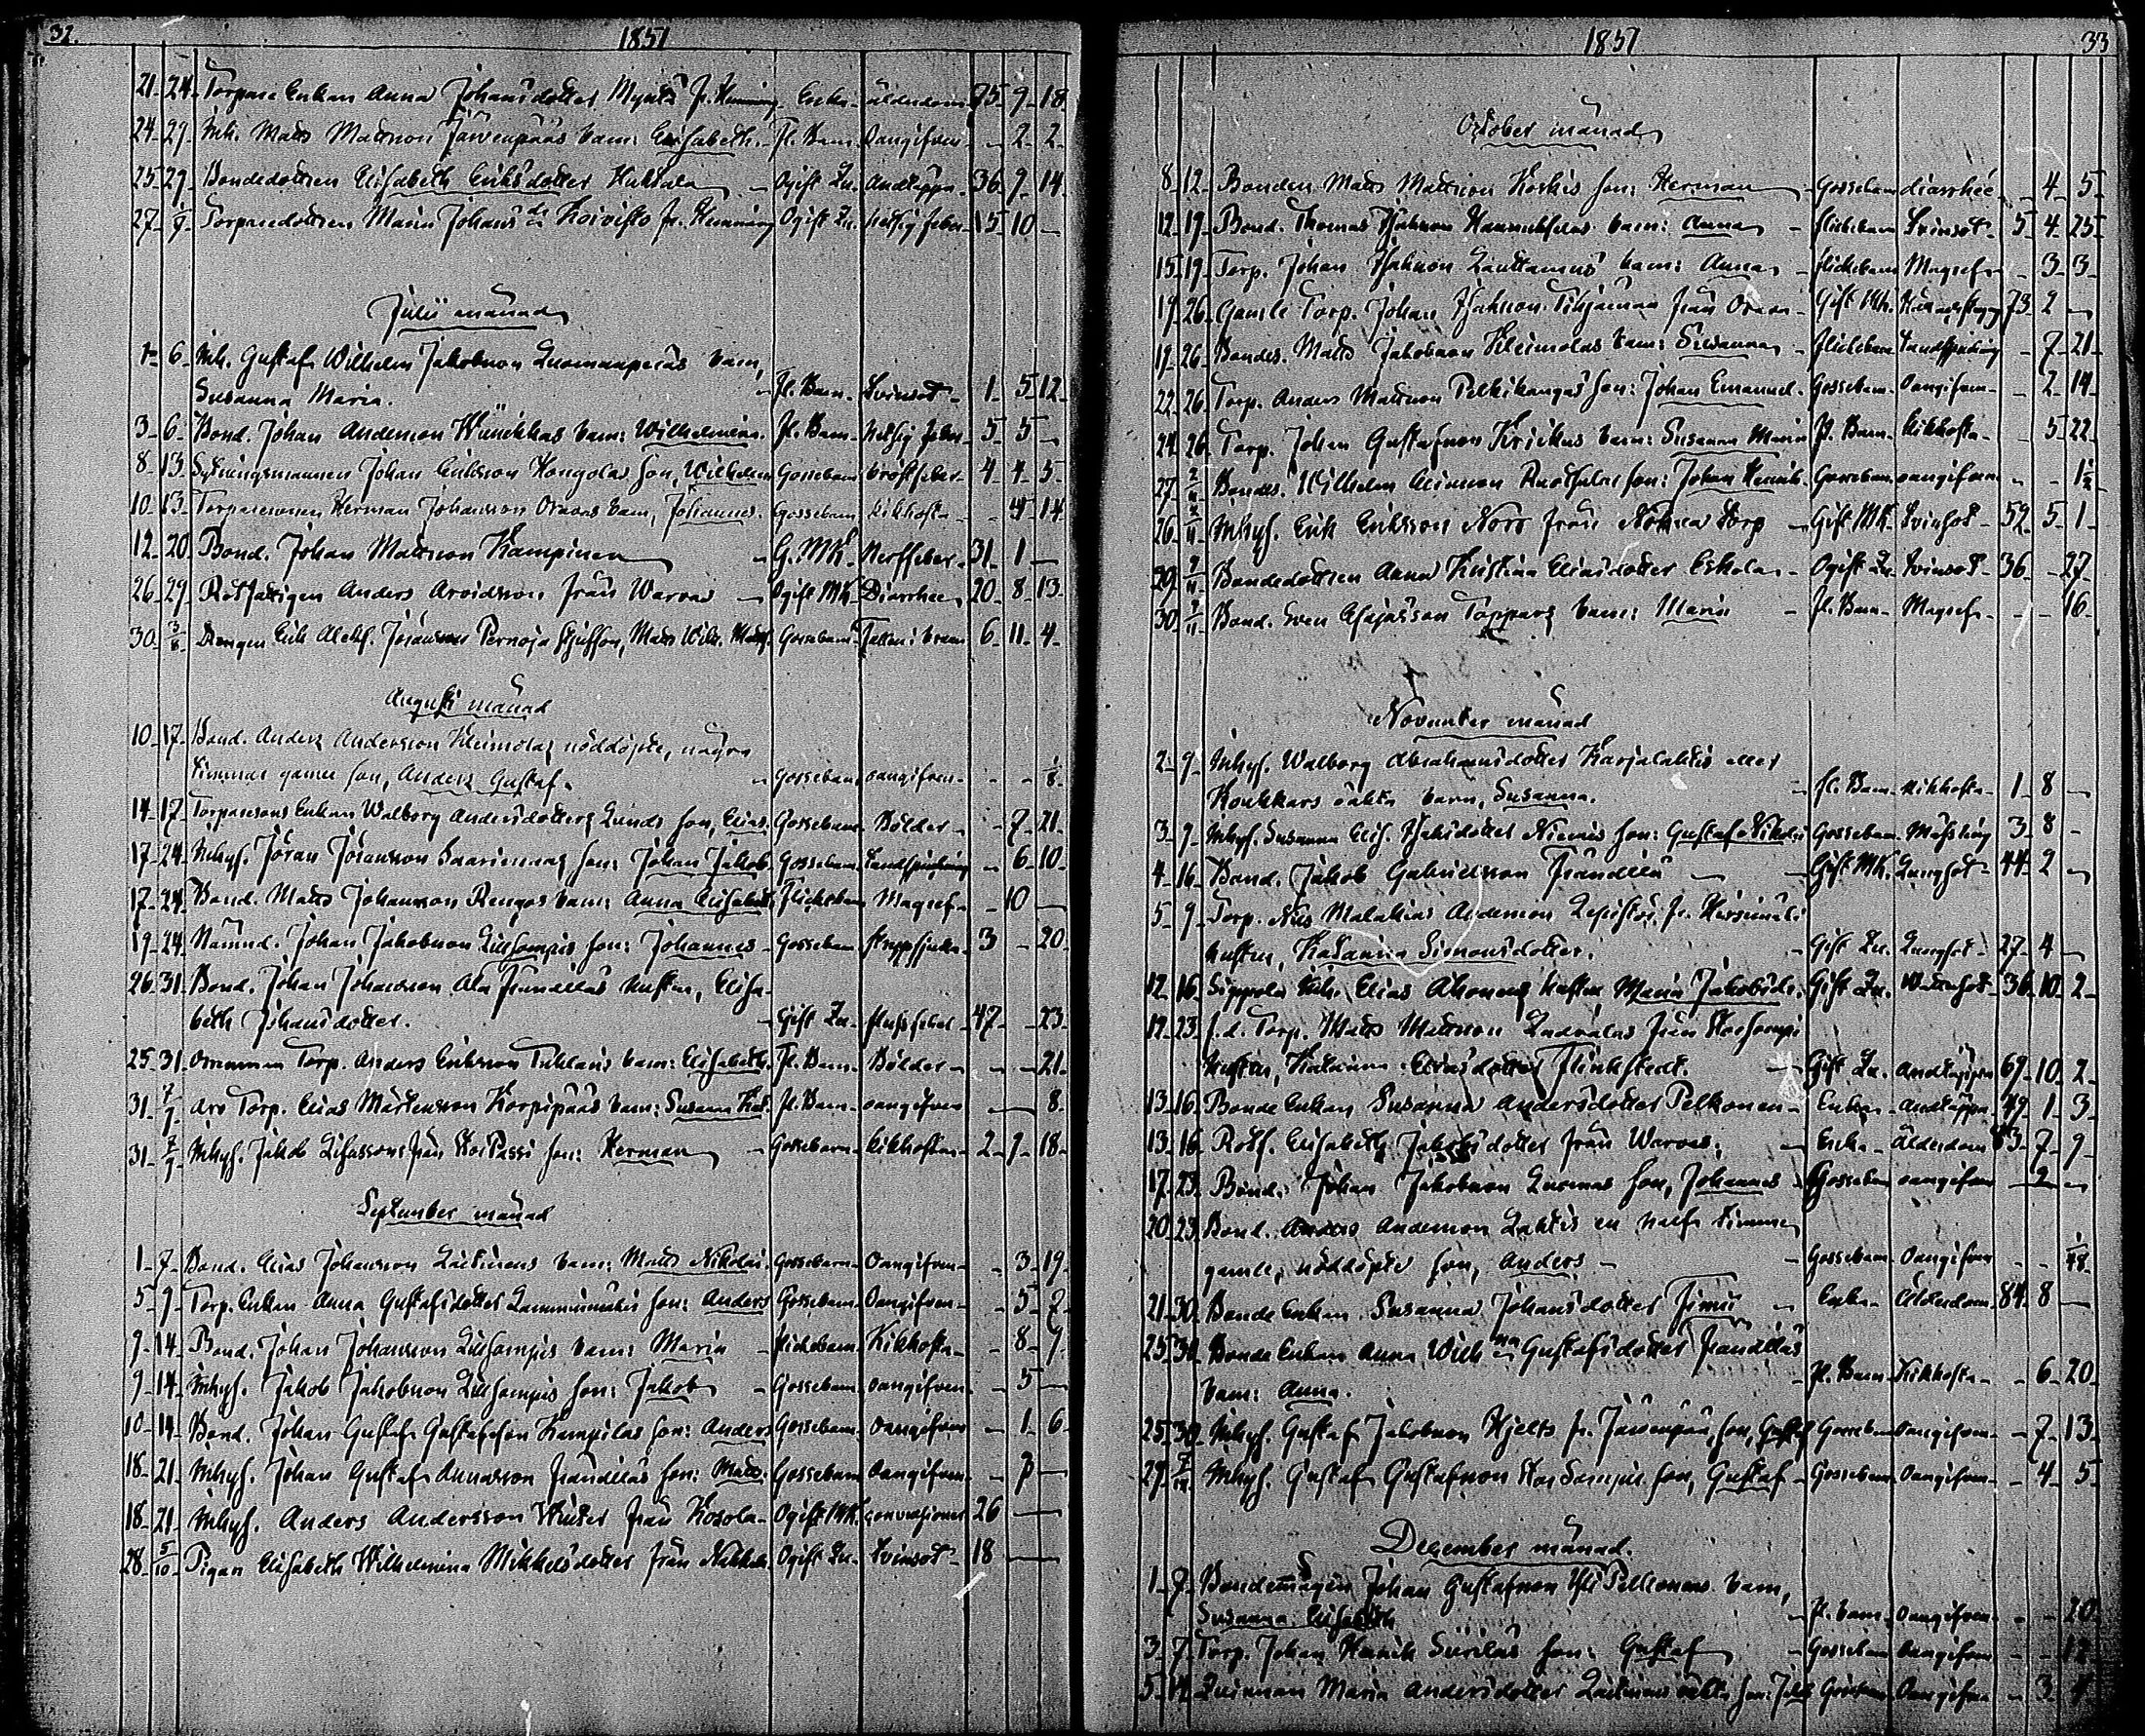 32. 1851
21 24 Torpare Enkan Anna Johansdotter Myntti fr. Hemming Enka ålderdom 75 9 18
24 29 Inh. Matts Mattsson Järvenpääs barn: Elisabeth. Fl. Barn Oangifven - 2 2
25 29 Bondedottren Elisabeth Eriksdotter Huhtala Ogift Qu. Andtäppa 36 9 14
27 Torparedottren Maria Johansdr Koivisto fr. Hemming Ogift Qu. hetsig feber 15 10 -
Julii månad
1 6 Inh. Gustaf Wilhelm Jakobsson Luomanperäs barn,
Susanna Maria. Fl. Barn Tvinsot 1 5 12
3 6 Bond. Johan Andersson barn: Wilhelmina. Fl. Barn hetsig feber 5 5 -
8 13 Sytningsmannen Johan Eriksson Kongolas son, Wilhelm Gossebarn bröstfeber 4 4 5
10 13 Torparesonen Herman Johansson Oravas barn, Johannes. Gossebarn kikhosta - 4 14
12 20 Bond. Johan Mattsson Kampinen G. MK. Nerffeber 31 1 -
26 29 Rotfattigen Anders Arvidsson från Warvas Ogift MK. Diarrhee 20 8 13
30 3/8 Drengen Erik Alexs. Pernaja son, Matts Wilh. Gossebarn Fallen i brunn 6 11 4
Augusti månad
10 17 Bond. Anders Andersson Kleimolas nöddöpte, några
timmar gamle son, Anders Gustaf. Gossebarn oangifven - - 1/8
14 17 Torparesons Enkan Walborg Andersdotters Lunds son, Elias Gossebarn Bölder - 7 21
17 24 Inhys. Jöran Jöransson Saarienmaas son: Johan Jakob Gossebarn Tandspricking - 6 10
17 24 Bond. Matts Johansson Rengos barn: Anna Elisabeth Flickebarn Magref - 10 -
19 24 Nämnd. Johan Jakobsson Lillsompis son: Johannes Gossebarn Strypsjuka 3 - 20
26 31 Bond. Johan Johansson Ala Frändiläs hustru, Elisa-
beth Johansdotter. Gift Qu. 47 - 23
25 31 Torp. Anders Eriksson barn: Elisabeth. Fl. Barn Bölder - - 21
31 7/9 Arv Torp. Elias Mårtensson Korpipääs barn: Susanna Kat. Fl. Barn oangifven - 8
31 7/9 Inhys. Jakob från son: Herman Gossebarn kikhosta 2 9 18
September månad
1 7 Bond. Elias Johansson Laitinens barn: Matts Nikolai. Gossebarn Oangifven - 3 19
5 9 Torp. Enkan Anna Gustafsdotter son: Anders Gossebarn Oangifven - 5 2
9 14 Bond. Johan Johansson Lillsompis barn: Maria Flickebarn Kikhosta - 8 9
9 14 Inhys. Jakob Jakobsson Lillsompis son: Jakob Gossebarn oangifven - 5 -
10 14 Bond. Johan Gustaf Gustafsson Kampilas son: Anders Gossebarn oangifven - 1 6
18 21 Inhys. Johan Gustaf Annasson Frändiläs son: Matts. Gossebarn Oangifven -
18 21 Inhys. Anders Andersson från Kosola Ogift MK. convulsioner 26 -
28 5/10 Pigan Elisabeth Wilhelmina Mikkelsdotter från Ogift Qu. Tvinsot 18 -
1851 33
October månad
8 12 Bonden Matts Mattsson Koskis son: Herman Gossebarn diarrhée - 4 5
12 19 Bond. Thomas Isaksson barn: Anna flickebarn Tvinsot 5 4 25
15 19 Torp. Johan Isaksson Lauttamus barn: Anna flickebarn Magref - 3 3
19 26 Gamle Torp. Johan Isaksson från Gift MK. 73 2 -
19 26 Bondes. Matts Jakobsson Kleimolas barn: Susanna Flickebarn Tandspricking - 7 21
22 26 Torp. Anders Mattsson Pelkikangas son: Johan Emanuel. Gossebarn Oangifven - 2 14
24 26 Torp. Johan Gustafsson Krickus barn: Susanna Maria Fl. Barn Kikhosta - 5 22
27 2/11 Bondes. Wilhelm son: Johan Henrik. Gossebarn oangifven - - 1 1/2
26 2/11 Inhys. Erik Eriksson Nors från Torp Gift MK. Tvinsot 52 5 1
29 2/11 Bondedottren Anna Kristina Eliasdotter Eskola Ogift Qu. Tvinsot 36 - 27
30 2/11 Bond. Sven Esajasson Toppars barn: Maria fl. Barn Magref - - 16
November månad
2 9 Inhys. Walborg Abrahamsdotter Karjalahtis eller
Koukkars oäkta barn, Susanna. fl. Barn Kikhosta 1 8 -
3 9 Inhys. Susanna Elis. Isaksdotter Niemis son: Gustaf Nikolai Gossebarn Mässling 3 8 -
4 16 Bond. Jakob Gabrielsson Frändilä Gift MK. Lungsot 44 2 -
5 9 Torp. Nils Malakias Andersson fr.
hustru, Katarina Simonsdotter. Gift Qu. Lungsot 27 4 -
12 16 Elias Ahonens hustru Maria Jakobsdr. Gift Qu. Wattusot 36 10 2
12 23 f.d. Torp. Matts Mattsson från
hustru, Katarina Eliasdotter Flinkstedt. Gift Qu. Andtäppa 69 10 2
13 16 Bonde Enkan Susanna Andersdotter Pelkonen Enka Andtäppa 79 1 3
13 16 Rotf. Elisabeth Jakobsdotter från Warvas. Enka Ålderdom 83 7 9
17 23 Bond. Johan Jakobsson Luomas son, Johannes Gossebarn oangifven - 2 -
20 23 Bond. Anders Andersson Lahtis en half timme
gamle, nöddöpte son, Anders Gossebarn Oangifven - - 1/48
21 30 Bonde Enkan Susanna Johansdotter Enka Ålderdom 84 8 -
25 30 Bonde Enkan Anna Wilhna Gustafsdotter Frändiläs
barn: Anna. Fl. Barn Kikhosta - 6 20
25 30 Inhys. Gustaf Jakobsson Hjelts fr. Järvenpää, son, Gustaf Gossebarn Oangifven - 7 13
29 7/12 Inhys. Gustaf Gustafsson son, Gustaf Gossebarn Oangifven - 4 5
December månad.
1 7 Bondemågen Johan Gustafsson Pelkonens barn,
Susanna Elisabeth Fl. barn Oangifven - - 20
3 7 Torp. Johan Henrik Siirilas son: Gustaf Gossebarn oangifven - - 12
5 14 Qvinnan Maria Andersdotter Laitinens oäkta son: Gossebarn Oangifven - 3